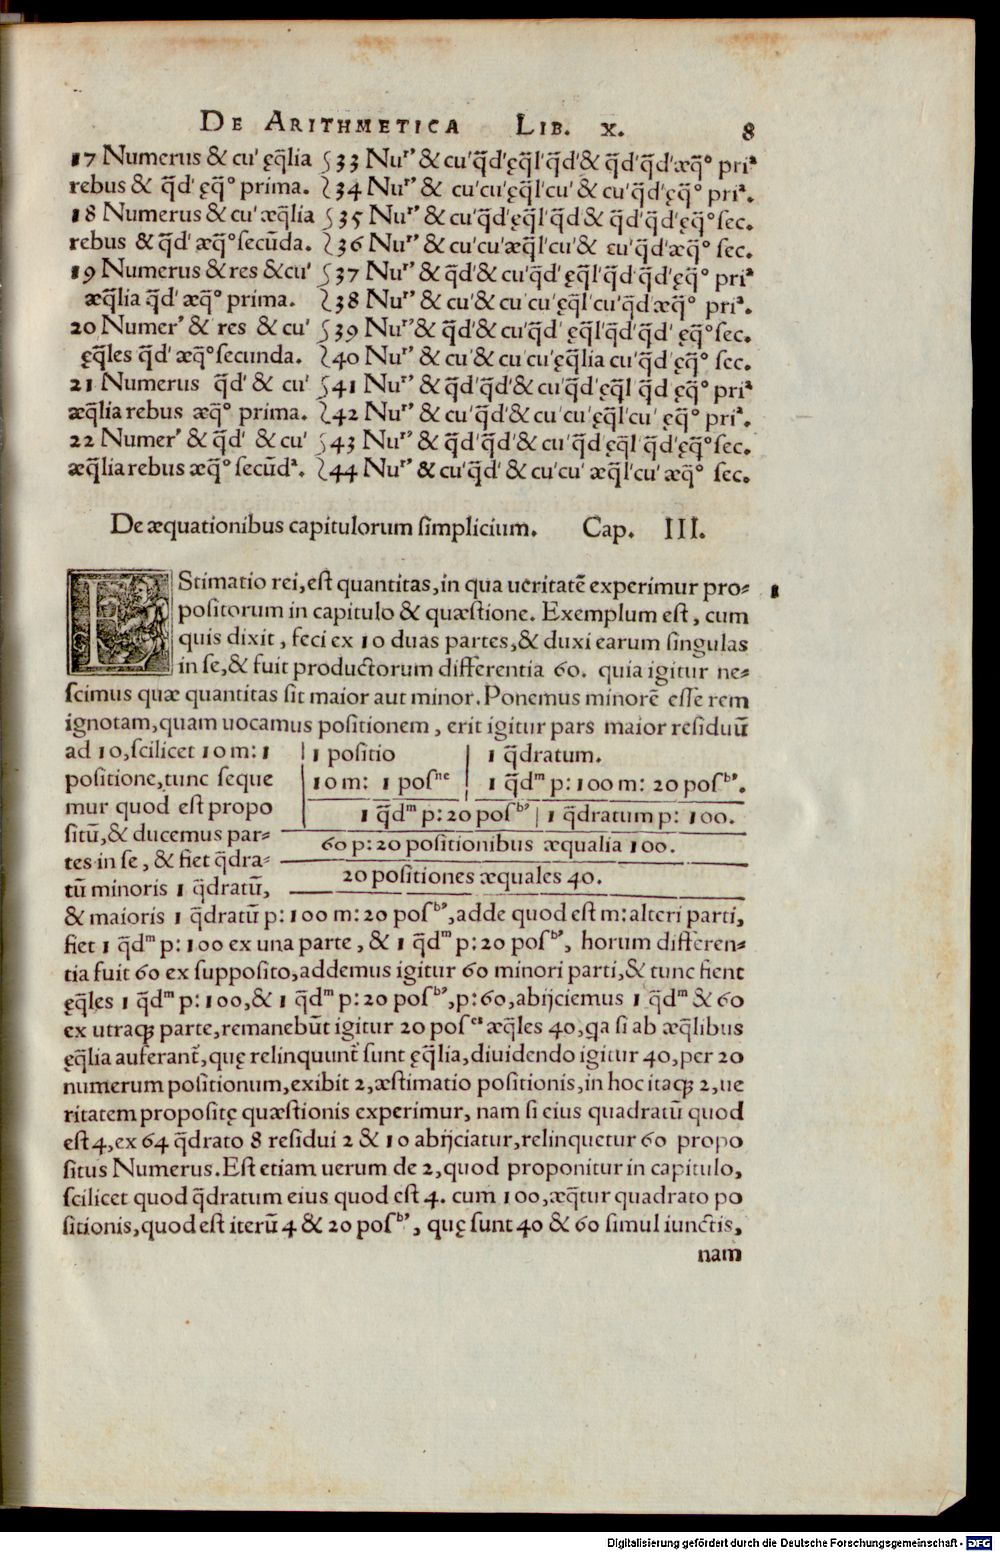 DE ARITHMETICA LIB. X. 8
17 Numerus & cu' ę̃q̃lia
rebus & q̃d' ęq̃° prima.
18 Numerus & cu' æq̃lia
rebus & q̃d' æq̃° secũda.
19 Numerus & res & cu'
æq̃lia q̃d' æq̃° prima.
20 Numer' & res & cu'
ęq̃les q̃d' æq̃° secunda.
21 Numerus q̃d' & cu'
æq̃lia rebus æq̃° prima.
22 Numer' & q̃d' & cu'
æq̃lia rebus æq̃° secũdª.
33 Nuʳ' & cu'q̃d'ęq̃l'q̃d'& q̃d'q̃d'æq̃° priª
34 Nuʳ' & cu'cu'ęq̃l'cu' & cu'q̃d'ęq̃° priª.
35 Nuʳ' & cu'q̃d'ęq̃l'q̃d & q̃d'q̃d'ęq̃° sec.
36 Nuʳ' & cu'cu'æq̃l'cu'& cu'q̃d'æq̃° sec.
37 Nuʳ' & q̃d'& cu'q̃d' ęq̃l'q̃d'q̃d'ęq̃° priª
38 Nuʳ' & cu'& cu cu'ęq̃l'cu'q̃d'æq̃° priª.
39 Nuʳ' & q̃d'& cu'q̃d' ęq̃l'q̃d'q̃d' ęq̃° sec.
40 Nuʳ' & cu'& cu cu'ęq̃lia cu'q̃d'ęq̃° sec.
41 Nuʳ' & q̃d'q̃d'& cu'q̃d'ęq̃l q̃d ęq̃° priª
42 Nuʳ' & cu'q̃d'& cu cu'ęq̃l'cu' ęq̃° priª.
43 Nuʳ' & q̃d'q̃d'& cu'q̃d'ęq̃l q̃d'ęq̃° sec.
44 Nuʳ' & cu'q̃d' & cu'cu' æq̃l'cu'æq̃° sec.
De æquationibus capitulorum simplicium. Cap. III.
EStimatio rei, est quantitas, in qua ueritatẽ experimur pro= 1
positorum in capitulo & quæstione. Exemplum est, cum
quis dixit, feci ex 10 duas partes, & duxi earum singulas
in se, & fuit productorum differentia 60. quia igitur ne=
scimus quæ quantitas sit maior aut minor. Ponemus minorẽ esse rem
ignotam, quam uocamus positionem, erit igitur pars maior residuũ
ad 10, scilicet 10 m: 1
positione, tunc seque
mur quod est propo
sitũ, & ducemus par=
tes in se, & fiet q̃dra=
tũ minoris 1 q̃dratũ,
1 positio | 1 q̃dratum.
10 m: 1 posⁿᵉ | 1 q̃dᵐ p: 100 m: 20 posᵇ'.
1 q̃dᵐ p: 20 posᵇ' | 1 q̃dratum p: 100.
60 p: 20 positionibus æqualia 100.
20 positiones æquales 40.
& maioris 1 q̃dratũ p: 100 m: 20 posᵇ', adde quod est m: alteri parti,
fiet 1 q̃dᵐ p: 100 ex una parte, & 1 q̃dᵐ p: 20 posᵇ', horum differen=
tia fuit 60 ex supposito, addemus igitur 60 minori parti, & tunc fient
ęq̃les 1 q̃dᵐ p: 100, & 1 q̃dᵐ p: 20 posᵇ', p: 60, abijciemus 1 q̃dᵐ & 60
ex utraqꝫ parte, remanebũt igitur 20 posᵉˢ æq̃les 40, q̃a si ab æq̃libus
ęq̃lia auferant̃, quę relinquunt̃ sunt ęq̃lia, diuidendo igitur 40, per 20
numerum positionum, exibit 2, æstimatio positionis, in hoc itaqꝫ 2, ue
ritatem propositę quæstionis experimur, nam si eius quadratũ quod
est 4, ex 64 q̃drato 8 residui 2 & 10 abijciatur, relinquetur 60 propo
situs Numerus. Est etiam uerum de 2, quod proponitur in capitulo,
scilicet quod q̃dratum eius quod est 4. cum 100, æq̃tur quadrato po
sitionis, quod est iterũ 4 & 20 posᵇ', quę sunt 40 & 60 simul iunctis,
nam
Digitalisierung gefördert durch die Deutsche Forschungsgemeinschaft - DFG